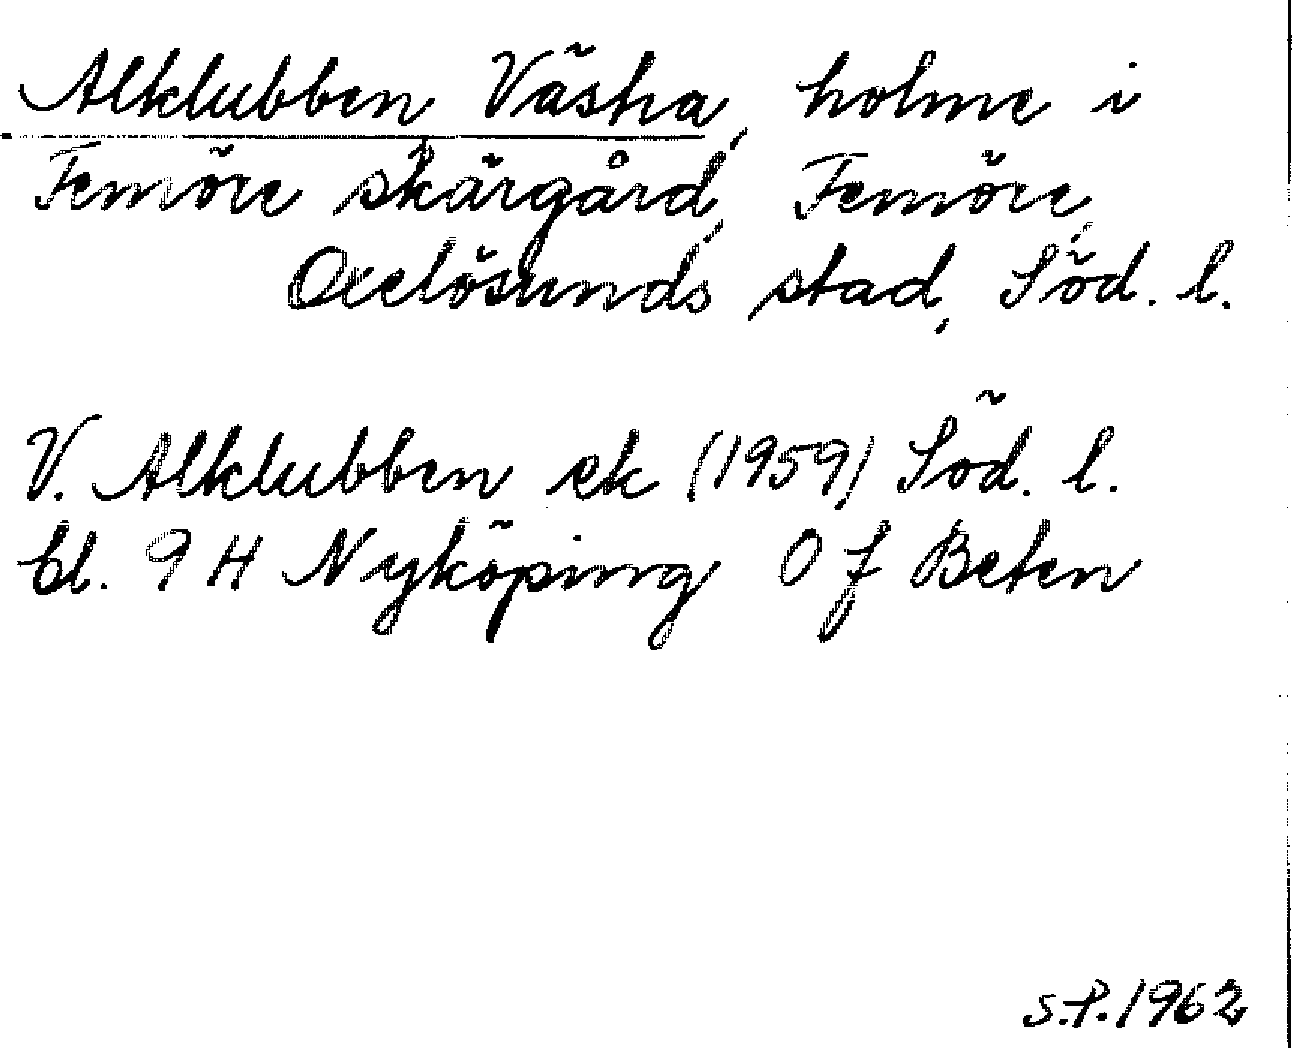 Alklubben Västra, holme i
Femöre skärgård, Femöre,
Oxelösunds stad, Söd. l.
V. Alklubben ek (1959) Söd. l.
bl. 9 H Nyköping O f Beten
S.P. 1962